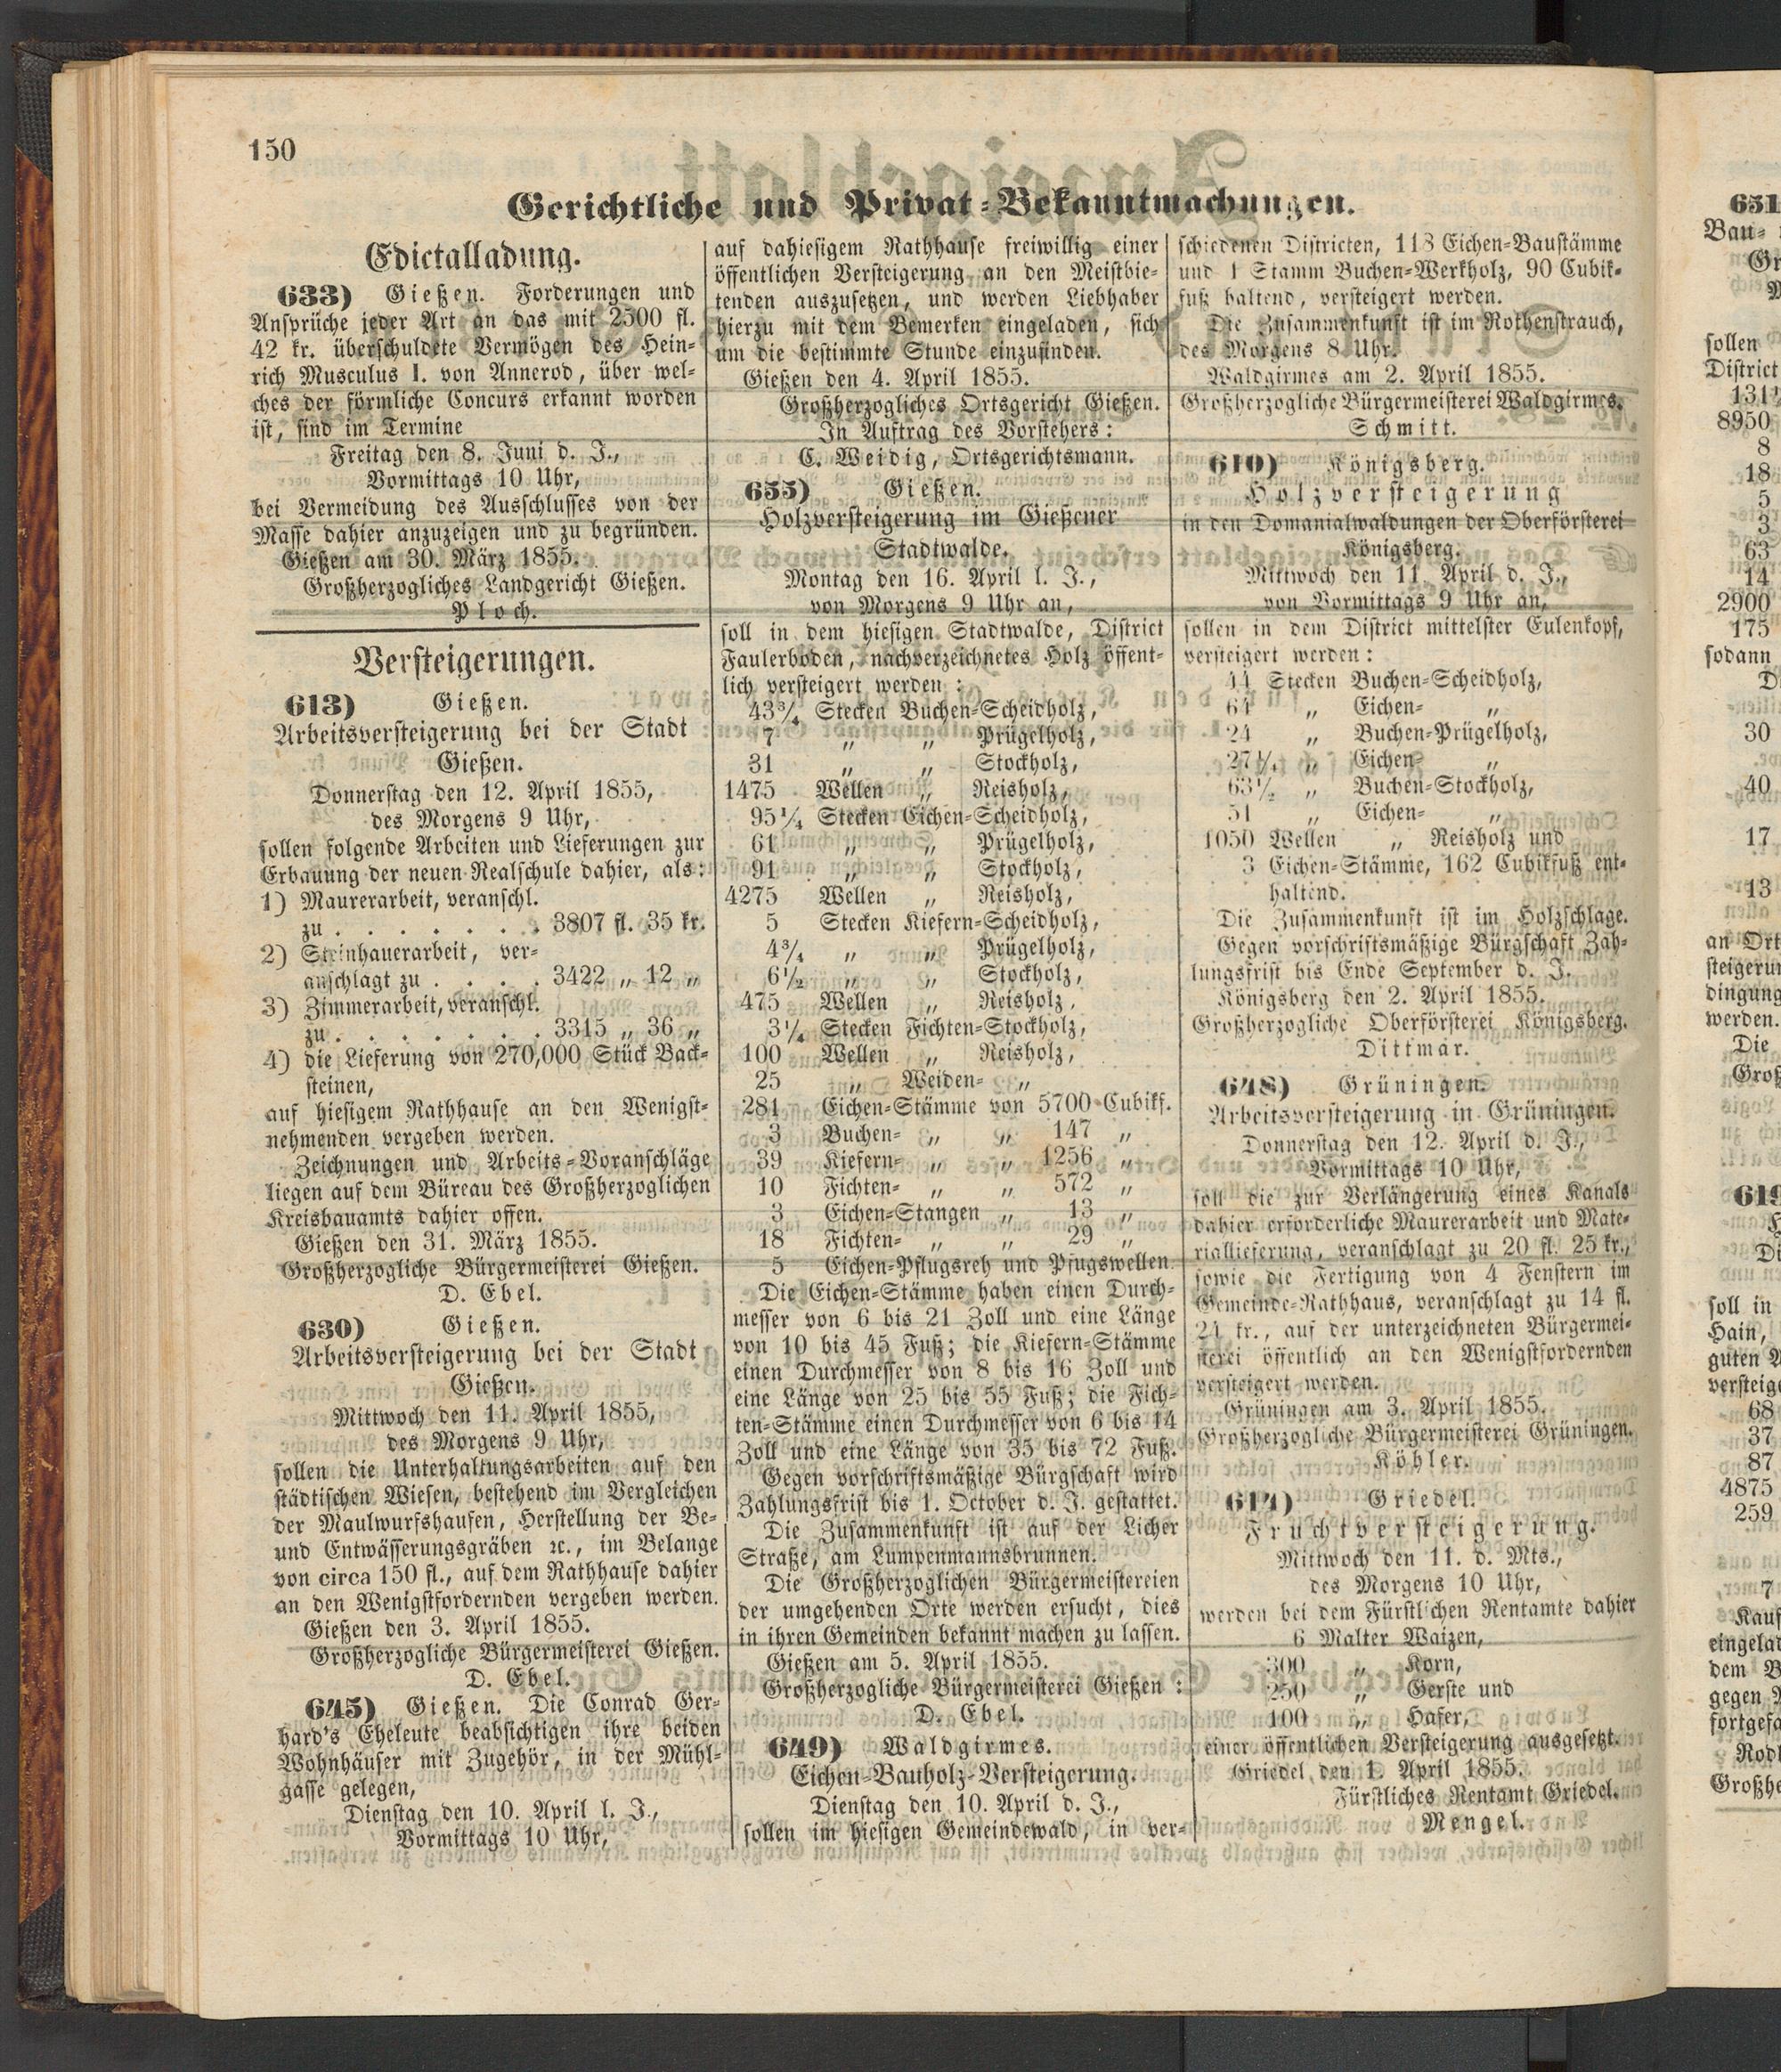 150
Gerichtliche und Privat-Bekanntmachungen.
Edictalladung.
633) Gießen. Forderungen und
Ansprüche jeder Art an das mit 2500 fl.
42 kr. überschuldete Vermögen des Hein-
rich Musculus I. von Annerod, über wel-
ches der förmliche Concurs erkannt worden
ist, sind im Termine
Freitag den 8. Juni d. J.,
Vormittags 10 Uhr,
bei Vermeidung des Ausschlusses von der
Masse dahier anzuzeigen und zu begründen.
Gießen am 30. März 1855.
Großherzogliches Landgericht Gießen.
Ploch.
Versteigerungen.
613) Gießen.
Arbeitsversteigerung bei der Stadt
Gießen.
Donnerstag den 12. April 1855,
des Morgens 9 Uhr,
sollen folgende Arbeiten und Lieferungen zur
Erbauung der neuen Realschule dahier, als:
1) Maurerarbeit, veranschl.
zu . . . . . . . 3807 fl. 35 kr.
2) Steinhauerarbeit, ver-
anschlagt zu . . . . 3422 „ 12 „
3) Zimmerarbeit, veranschl.
zu . . . . . . . 3315 „ 36 „
4) die Lieferung von 270,000 Stück Back-
steinen,
auf hiesigem Rathhause an den Wenigst-
nehmenden vergeben werden.
Zeichnungen und Arbeits-Voranschläge
liegen auf dem Büreau des Großherzoglichen
Kreisbauamts dahier offen.
Gießen den 31. März 1855.
Großherzogliche Bürgermeisterei Gießen.
D. Ebel.
630) Gießen.
Arbeitsversteigerung bei der Stadt
Gießen.
Mittwoch den 11. April 1855,
des Morgens 9 Uhr,
sollen die Unterhaltungsarbeiten auf den
städtischen Wiesen, bestehend im Vergleichen
der Maulwurfshaufen, Herstellung der Be-
und Entwässerungsgräben ꝛc., im Belange
von circa 150 fl., auf dem Rathhause dahier
an den Wenigstfordernden vergeben werden.
Gießen den 3. April 1855.
Großherzogliche Bürgermeisterei Gießen.
D. Ebel.
645) Gießen. Die Conrad Ger-
hard's Eheleute beabsichtigen ihre beiden
Wohnhäuser mit Zugehör, in der Mühl-
gasse gelegen,
Dienstag den 10. April l. J.,
Vormittags 10 Uhr,
auf dahiesigem Rathhause freiwillig einer
öffentlichen Versteigerung an den Meistbie-
tenden auszusetzen, und werden Liebhaber
hierzu mit dem Bemerken eingeladen, sich
um die bestimmte Stunde einzufinden.
Gießen den 4. April 1855.
Großherzogliches Ortsgericht Gießen.
In Auftrag des Vorstehers:
C. Weidig, Ortsgerichtsmann.
655) Gießen.
Holzversteigerung im Gießener
Stadtwalde.
Montag den 16. April l. J.,
von Morgens 9 Uhr an,
soll in dem hiesigen Stadtwalde, District
Faulerboden, nachverzeichnetes Holz öffent-
lich versteigert werden:
43¾ Stecken Buchen-Scheidholz,
7 „ „ Prügelholz,
31 „ „ Stockholz,
1475 Wellen „ Reisholz,
95¼ Stecken Eichen-Scheidholz,
61 „ „ Prügelholz,
91 „ „ Stockholz,
4275 Wellen „ Reisholz,
5 Stecken Kiefern-Scheidholz,
4¾ „ „ Prügelholz,
6½ „ „ Stockholz,
475 Wellen „ Reisholz,
3¼ Stecken Fichten-Stockholz,
100 Wellen „ Reisholz,
25 „ Weiden- „
281 Eichen-Stämme von 5700 Cubikf.
3 Buchen- „ „ 147 „
39 Kiefern- „ „ 1256 „
10 Fichten- „ „ 572 „
3 Eichen-Stangen „ 13 „
18 Fichten- „ „ 29 „
5 Eichen-Pflugsreh und Pfugswellen.
Die Eichen-Stämme haben einen Durch-
messer von 6 bis 21 Zoll und eine Länge
von 10 bis 45 Fuß; die Kiefern-Stämme
einen Durchmesser von 8 bis 16 Zoll und
eine Länge von 25 bis 55 Fuß; die Fich-
ten-Stämme einen Durchmesser von 6 bis 14
Zoll und eine Länge von 35 bis 72 Fuß.
Gegen vorschriftsmäßige Bürgschaft wird
Zahlungsfrist bis 1. October d. J. gestattet.
Die Zusammenkunft ist auf der Licher
Straße, am Lumpenmannsbrunnen.
Die Großherzoglichen Bürgermeistereien
der umgehenden Orte werden ersucht, dies
in ihren Gemeinden bekannt machen zu lassen.
Gießen am 5. April 1855.
Großherzogliche Bürgermeisterei Gießen:
D. Ebel.
649) Waldgirmes.
Eichen-Bauholz-Versteigerung.
Dienstag den 10. April d. J.,
sollen im hiesigen Gemeindewald, in ver-
schiedenen Districten, 118 Eichen-Baustämme
und 1 Stamm Buchen-Werkholz, 90 Cubik-
fuß haltend, versteigert werden.
Die Zusammenkunft ist im Rothenstrauch,
des Morgens 8 Uhr.
Waldgirmes am 2. April 1855.
Großherzogliche Bürgermeisterei Waldgirmes.
Schmitt.
610) Königsberg.
Holzversteigerung
in den Domanialwaldungen der Oberförsterei
Königsberg.
Mittwoch den 11. April d. J.,
von Vormittags 9 Uhr an,
sollen in dem District mittelster Eulenkopf,
versteigert werden:
44 Stecken Buchen-Scheidholz,
64 „ Eichen- „
24 „ Buchen-Prügelholz,
27¼ „ Eichen- „
63½ „ Buchen-Stockholz,
51 „ Eichen- „
1050 Wellen „ Reisholz und
3 Eichen-Stämme, 162 Cubikfuß ent-
haltend.
Die Zusammenkunft ist im Holzschlage.
Gegen vorschriftsmäßige Bürgschaft Zah-
lungsfrist bis Ende September d. J.
Königsberg den 2. April 1855.
Großherzogliche Oberförsterei Königsberg.
Dittmar.
648) Grüningen.
Arbeitsversteigerung in Grüningen.
Donnerstag den 12. April d. J.,
Vormittags 10 Uhr,
soll die zur Verlängerung eines Kanals
dahier erforderliche Maurerarbeit und Mate-
riallieferung, veranschlagt zu 20 fl. 25 kr.,
sowie die Fertigung von 4 Fenstern im
Gemeinde-Rathhaus, veranschlagt zu 14 fl.
24 kr., auf der unterzeichneten Bürgermei-
sterei öffentlich an den Wenigstfordernden
versteigert werden.
Grüningen am 3. April 1855.
Großherzogliche Bürgermeisterei Grüningen.
Köhler.
614) Griedel.
Fruchtversteigerung.
Mittwoch den 11. d. Mts.,
des Morgens 10 Uhr,
werden bei dem Fürstlichen Rentamte dahier
6 Malter Waizen,
300 „ Korn,
250 „ Gerste und
100 „ Hafer,
einer öffentlichen Versteigerung ausgesetzt.
Griedel den 1. April 1855.
Fürstliches Rentamt Griedel.
Mengel.
651
Bau-
sollen
District
8950
8
18
5
3
63
14
2900
175
sodann
30
40
17
13
an Ort
werden.
Die
619
soll in
Hain,
guten
68
37
87
4875
259
7
dem
gegen